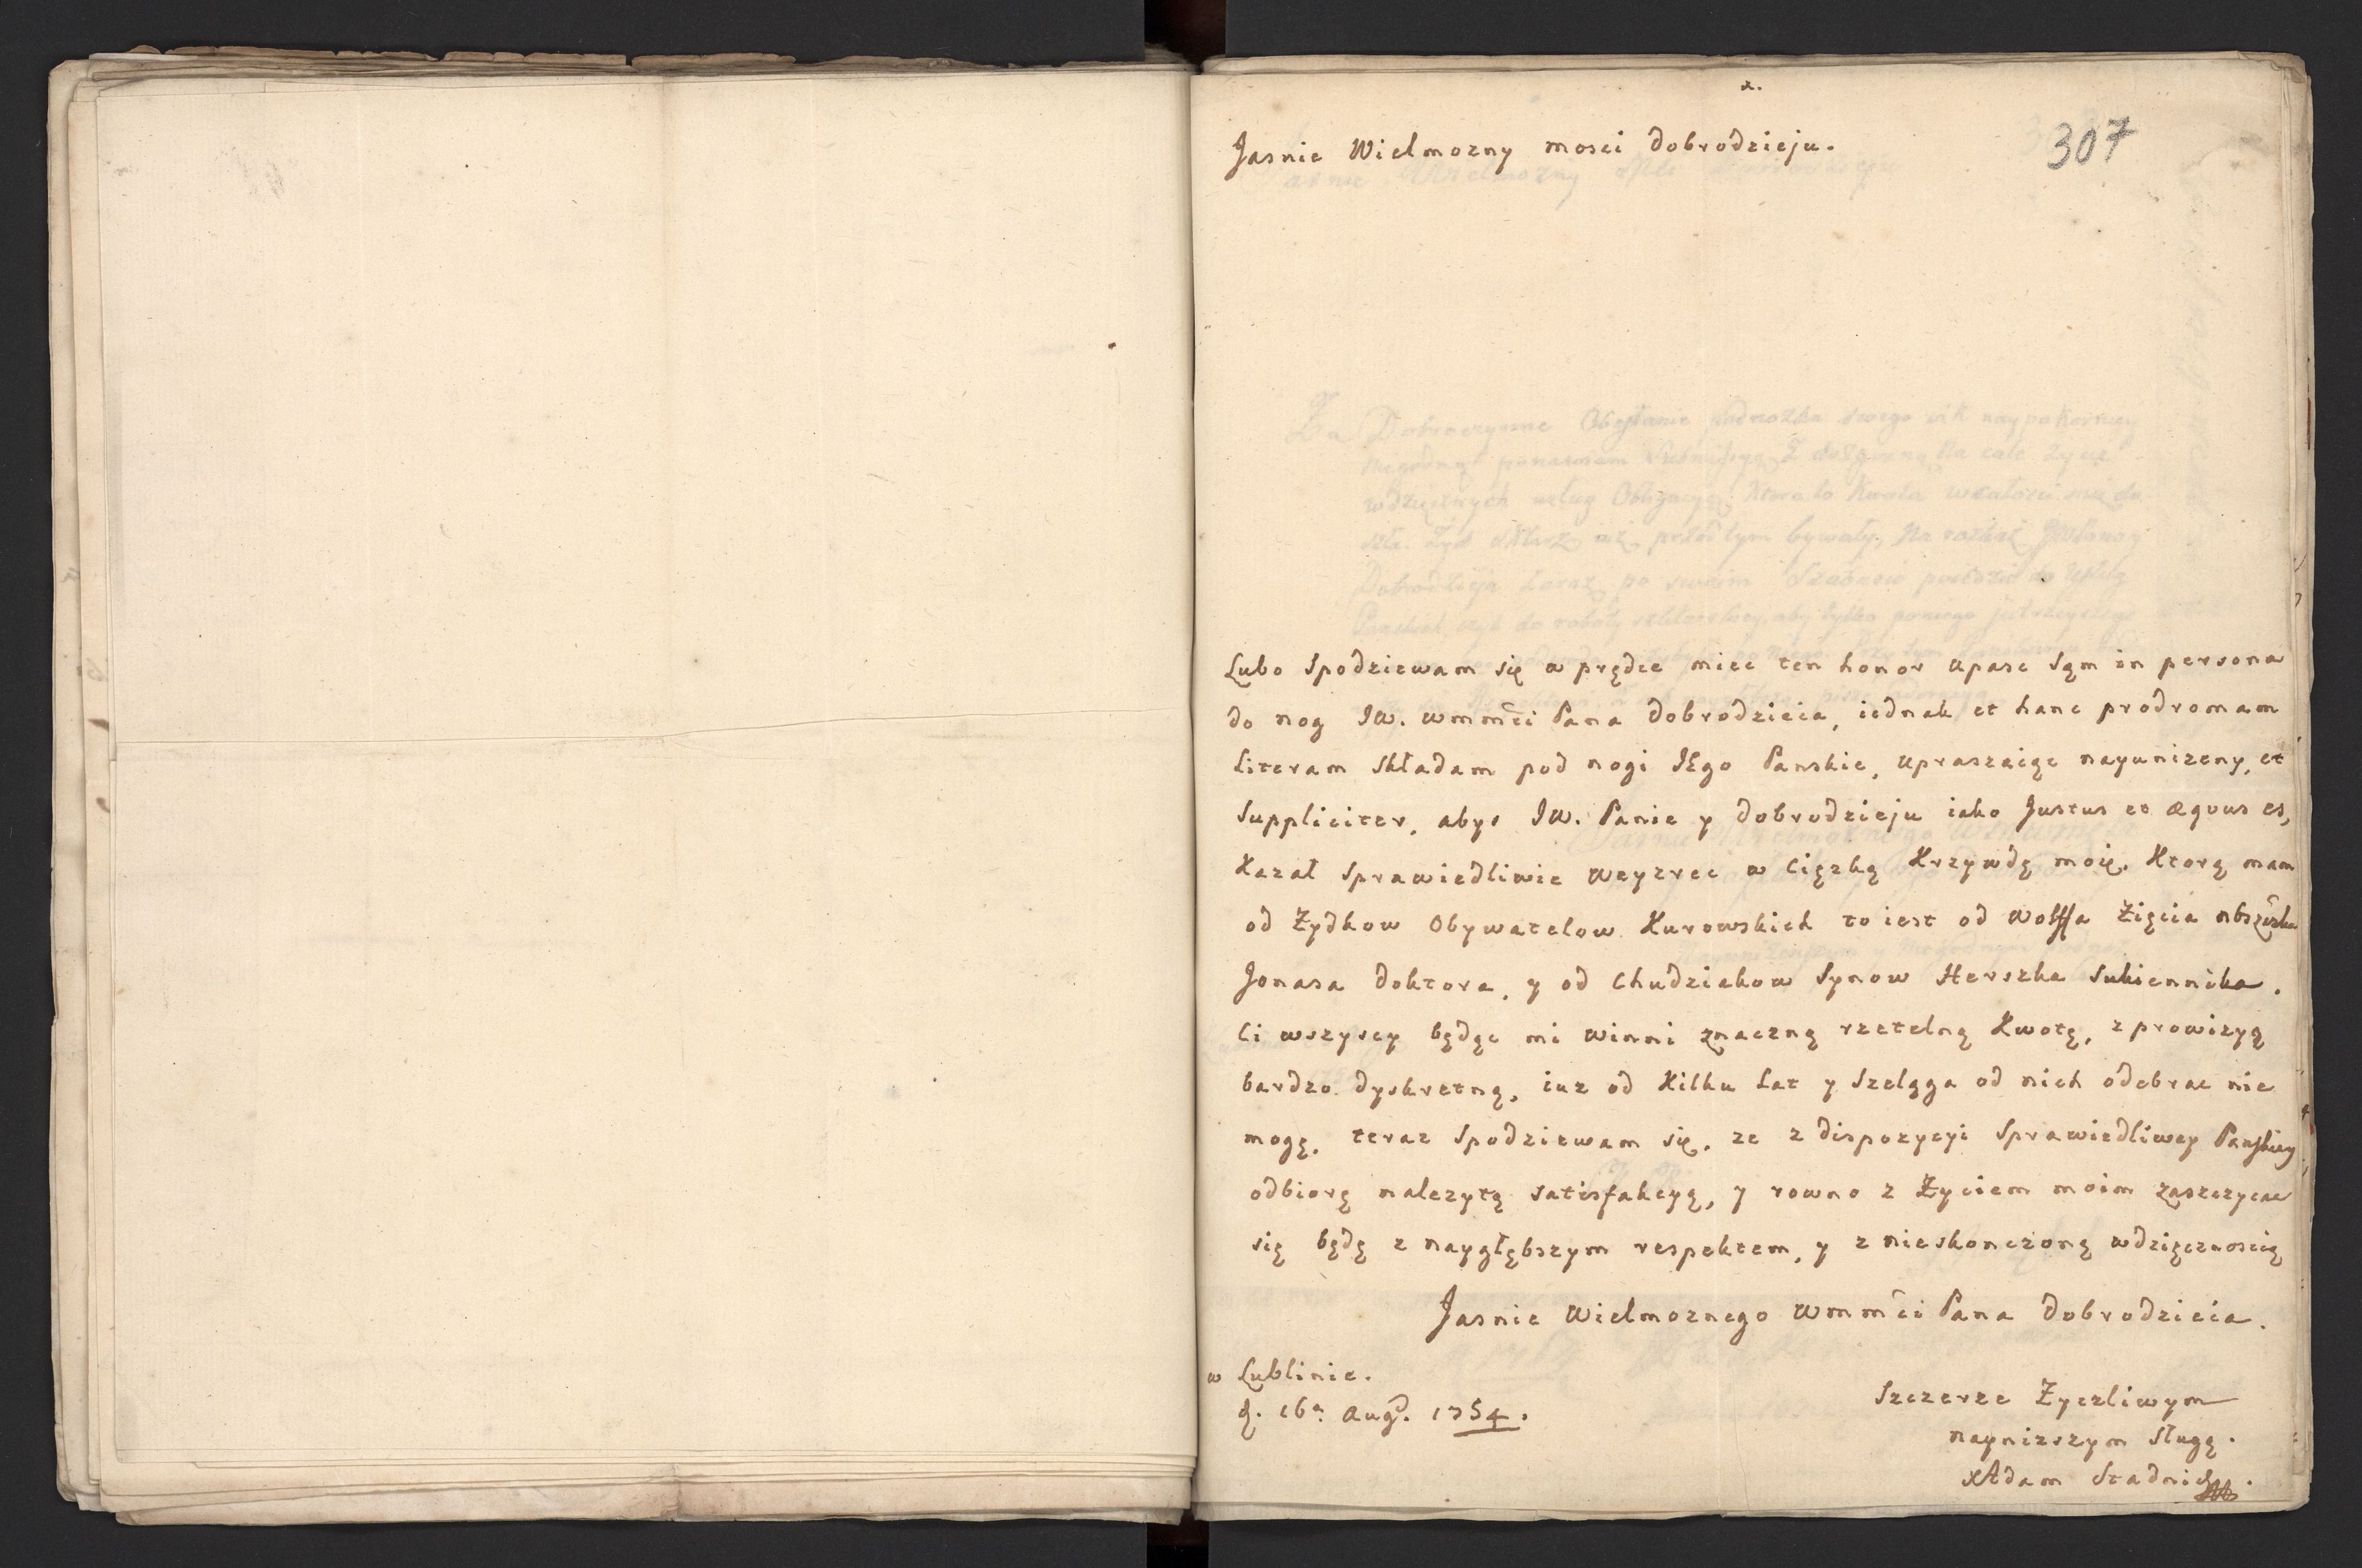 x.
307
Jasnie Wielmozny mosci Dobrodzieju.
Lubo Spodziewam się w prędce miec ten honor upasc Sąm in persona
do nog JW. wmmci Pana Dobrodzieia, iednak et hanc prodromam
Literam Składam pod nogi JEgo Panskie, upraszaiąc nayunizeny, et
Suppliciter, abys JW. Panie y Dobrodzieju iako Justus et æquus es,
Kazał Sprawiedliwie weyzrec w Cięzką Krzywdę moię. Ktorą mam
od Żydkow Obywatelow Kurowskich to iest od Wolffa Zięcia
Jonasa Doktora, y od Chudziakow Synow Herszka Sukiennika.
Ci wszyscy będąc mi winni znaczną rzetelną Kwotę, z prowizyą
bardzo dyskretną, iuz od Kilku Lat y Szeląga od nich odebrac nie
mogę. teraz Spodziewam się. ze z dispozycyi Sprawiedliwey Panskiey
odbiorę nalezytą satisfakcyą, y rowno z Życiem moim zaszczycac
się będę z naygłębszym respektem, y z nieskonczoną wdzięcznoscią
Jasnie Wielmoznego Wmmci Pana Dobrodzieia.
w Lublinie.
d. 16a. Aug. 1754.
Szczerze Zyczliwym
naynizszym Sługą.
xAdam